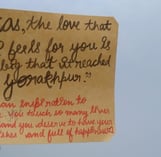 as, the love that
feels for you is
that it reached
Gorakhpur."
an inspiration to
You touch so many lives
and you deserve to have your
and full of happiness